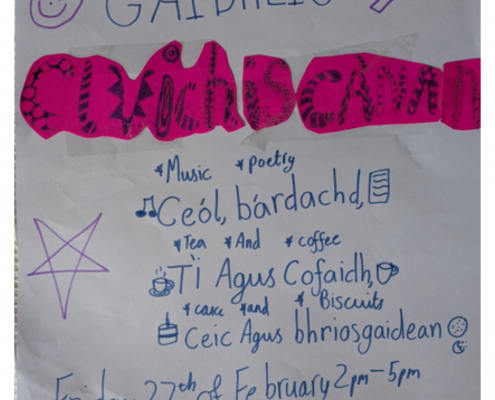 GAIDHLIG
CLUich iS CÀNAN
*Music *poetry
Ceól, bárdachd,
*Tea *And *coffee
Tì Agus Cofaidh,
*cake *and *Biscuits
Ceic Agus bhriosgaidean
Friday 27th of February 2pm-5pm